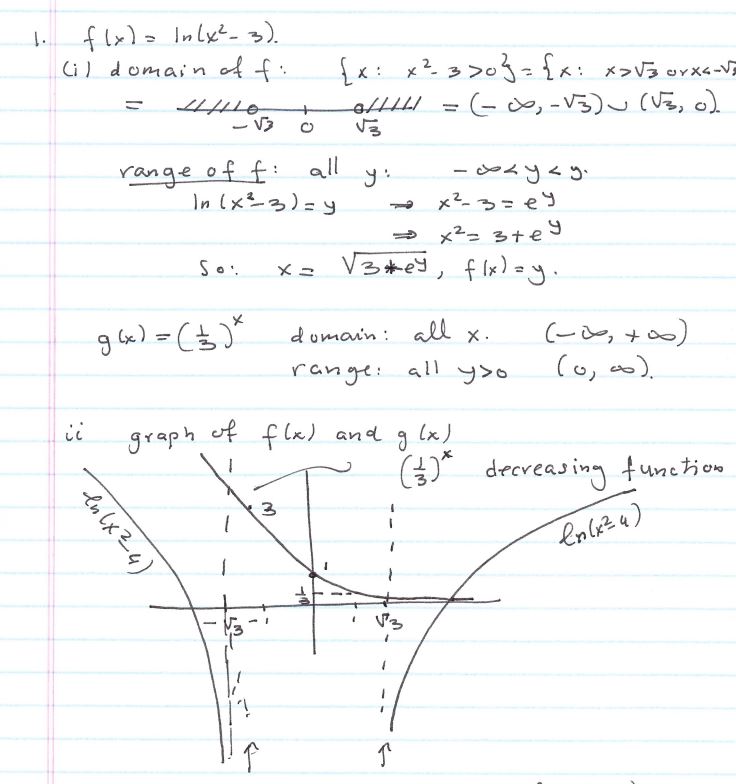 1. f(x) = ln(x² - 3).
(i) domain of f: {x: x² - 3 > 0} = {x: x > √3 or x < -√3
= -√3 0 √3 = (-∞, -√3) ∪ (√3, 0).
range of f: all y: -∞ < y < y.
ln(x² - 3) = y ⇒ x² - 3 = e^y
⇒ x² = 3 + e^y
So: x = √(3 + e^y), f(x) = y.
g(x) = (1/3)^x domain: all x. (-∞, +∞)
range: all y > 0 (0, ∞).
ii graph of f(x) and g(x)
(1/3)^x decreasing function
ln(x² - 4)
3
ln(x² - 4)
1
1/3
-√3 -1 1 √3